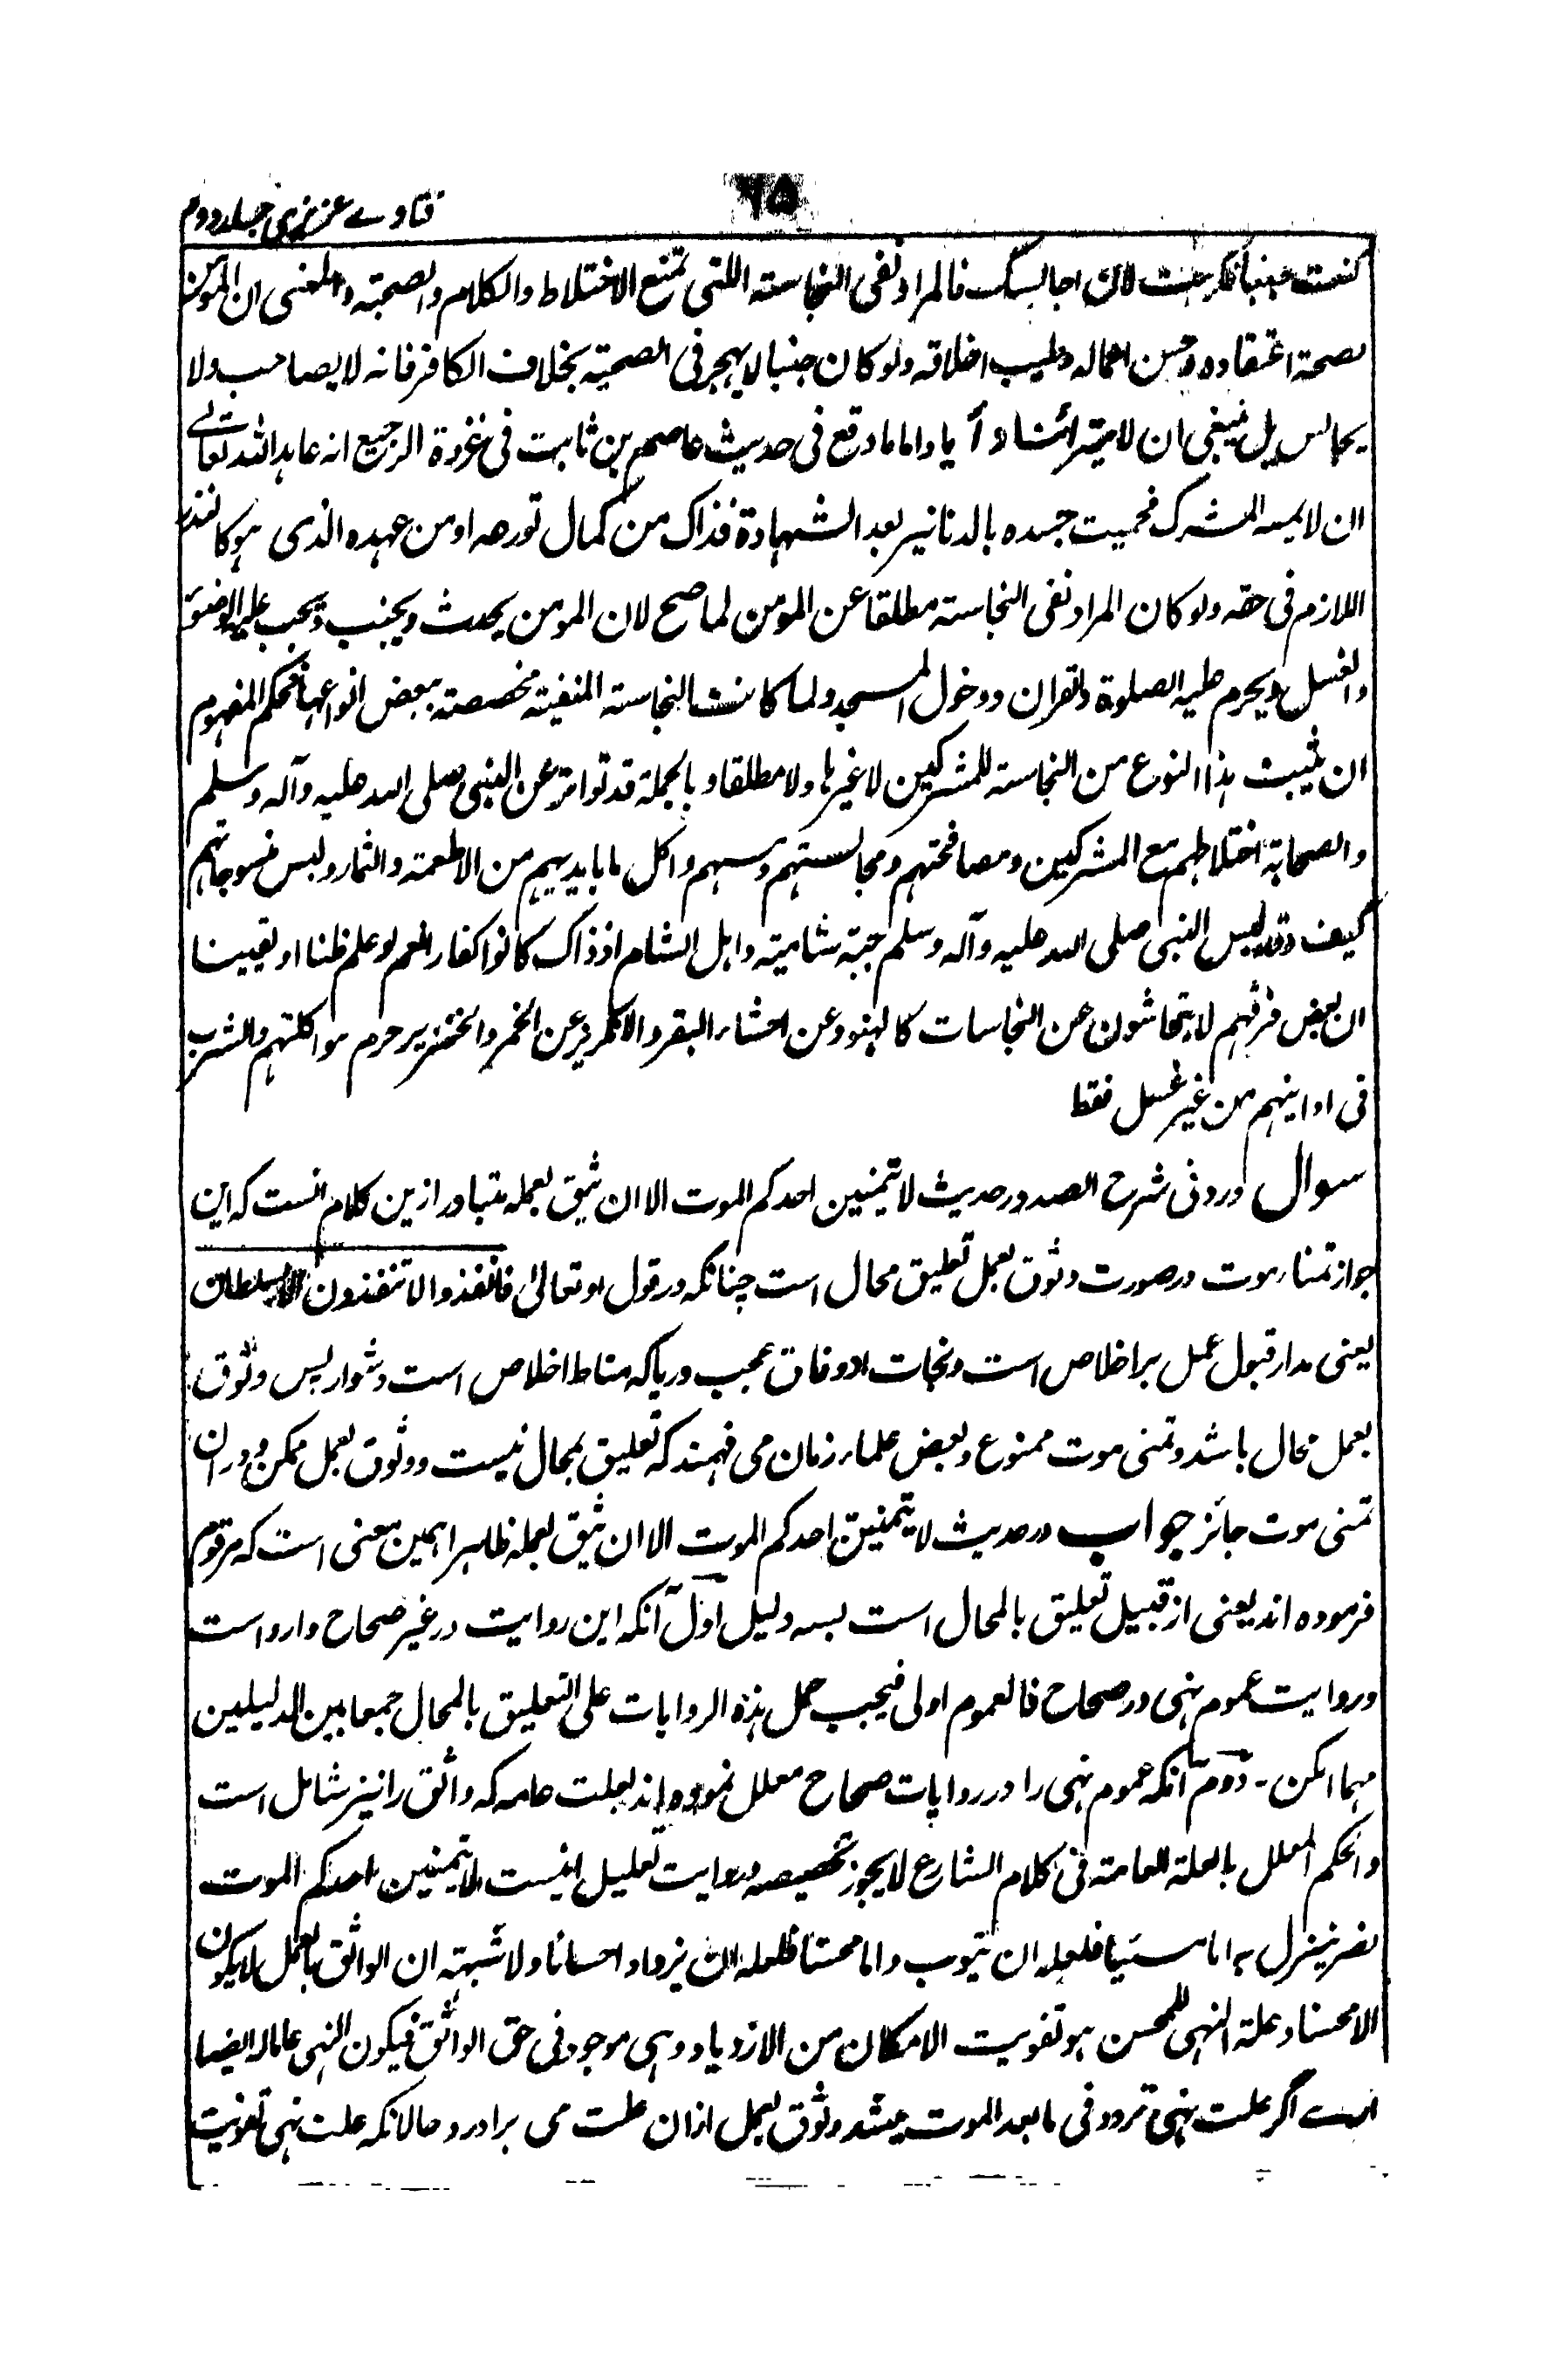 ۶۵
فتاوے عزیزی جلد دوم
کنعت جنبا فکرہت لان اجالسک فالمراد نفی النجاسته اللتی تمنع الاختلاط والکلام والصحبته والمعنی ان المومن
لصحة اعتقاده وحسن اعماله وطیب اخلاقه ولو کان جنبا لا یهجر فی الصحبة بخلاف الکافر فانه لا یصاحب ولا
یجالس بل ینبغی ان لا یتراٸ نادا یا واما ما وقع فی حدیث عاصم بن ثابت فی غزوة الرجیع انه عاهد الله تعالے
ان لا یمسه المشرک فحمیت جسده بالدنانیر بعد الشهادة فذاک من کمال تورعه او من عهده الذی هو کالنذر
اللازم فی حقه ولو کان المراد نفی النجاسته مطلقا عن المومن لما صح لان المومن یحدث ویجنب ویجب علیه الوضوء
والغسل ویحرم علیه الصلوة والقران ودخول المسجد ولما کانت النجاسة المنفیته مخصصته ببعض انواعها فحکم المفهوم
ان یثبت هذا النوع من النجاسته للمشرکین لا غیرها ولا مطلقا وبالجملة قد تواتر عن النبی صلی الله علیه وآله وسلم
والصحابة اختلاطهم مع المشرکین ومصافحتهم ومجالستهم ومسهم واکل ما بایدیهم من الاطعمة والثمار ولبس منسوجاتهم
کیف وقد لبس النبی صلی الله علیه وآله وسلم جبة شامیة واهل الشام اذ ذاک کانوا کفار نعم لو علم ظنا او یقینا
ان بعض فرقهم لا یتحاشون عن النجاسات کالهنود عن احشاء البقر والانکریز عن الخمر والخنزیر حرم مواکلتهم والشرب
فی اوانیهم من غیر غسل فقط
سوال ورد فی شرح الصدور حدیث لا یتمنین احدکم الموت الا ان یثق بعمله متبادر ازین کلام انست که این
جواز تمناء موت در صورت وثوق بعمل تعلیق محال است چنانکه در قول او تعالیٰ فانفذوا لا تنفذون الا بسلطان
یعنی مدار قبول عمل بر اخلاص است ونجات از وفاق عجب وریا که مناط اخلاص است دشوار پس وثوق
بعمل محال باشد وتمنی موت ممنوع وبعض علماء زمان می فهمند که تعلیق بمحال نیست ووثوق بعمل ممکن ودران
تمنی موت جائز جواب در حدیث لا یتمنین احدکم الموت الا ان یثق بعمله ظاهرا همین معنی است که مرقوم
فرموده اند یعنی از قبیل تعلیق بالمحال است بسه دلیل اول آنکه این روایت در غیر صحاح وارد است
وروایت عموم نهی در صحاح فالعموم اولی فیجب حمل هذه الروایات علی التعلیق بالمحال جمعا بین الدلیلین
مهما امکن - دوم آنکه عموم نهی را در روایات صحاح معلل نموده اند بعلت عامه که واثق را نیز شامل است
والحکم المعلل بالعلة العامة فی کلام الشارع لا یجوز تخصیصه وروایت تعلیل اینست لا یتمنین احدکم الموت
لضر ینزل به اما مسیئا فلعله ان یتوب واما محسنا فلعله ان یزداد احسانا ولا شبهته ان الواثق بالعمل لا یکون
الا محسنا وعلة النهی للمحسن هو تفویت الامکان من الازدیاد وهی موجود فی حق الواثق فیکون النهی عاما له ایضا
ارے اگر علت نهی تردد فی ما بعد الموت میشد وثوق بعمل ازان علت می برادرد حالانکه علت نهی تفویت